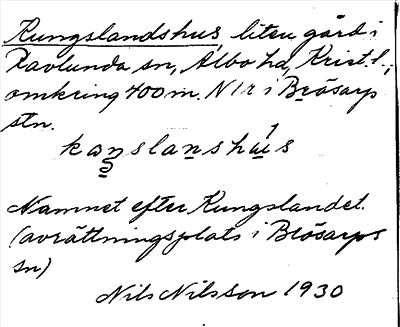 Kungslandshus, liten gård i
Ravlunda sn, Albo hd, Krist. l.,
omkring 400 m. N Ir i Brösarps
stn.
kaŋslanshu̇s
Namnet efter Kungslandet.
(avrättningsplats i Brösarps
sn)
Nils Nilsson 1930